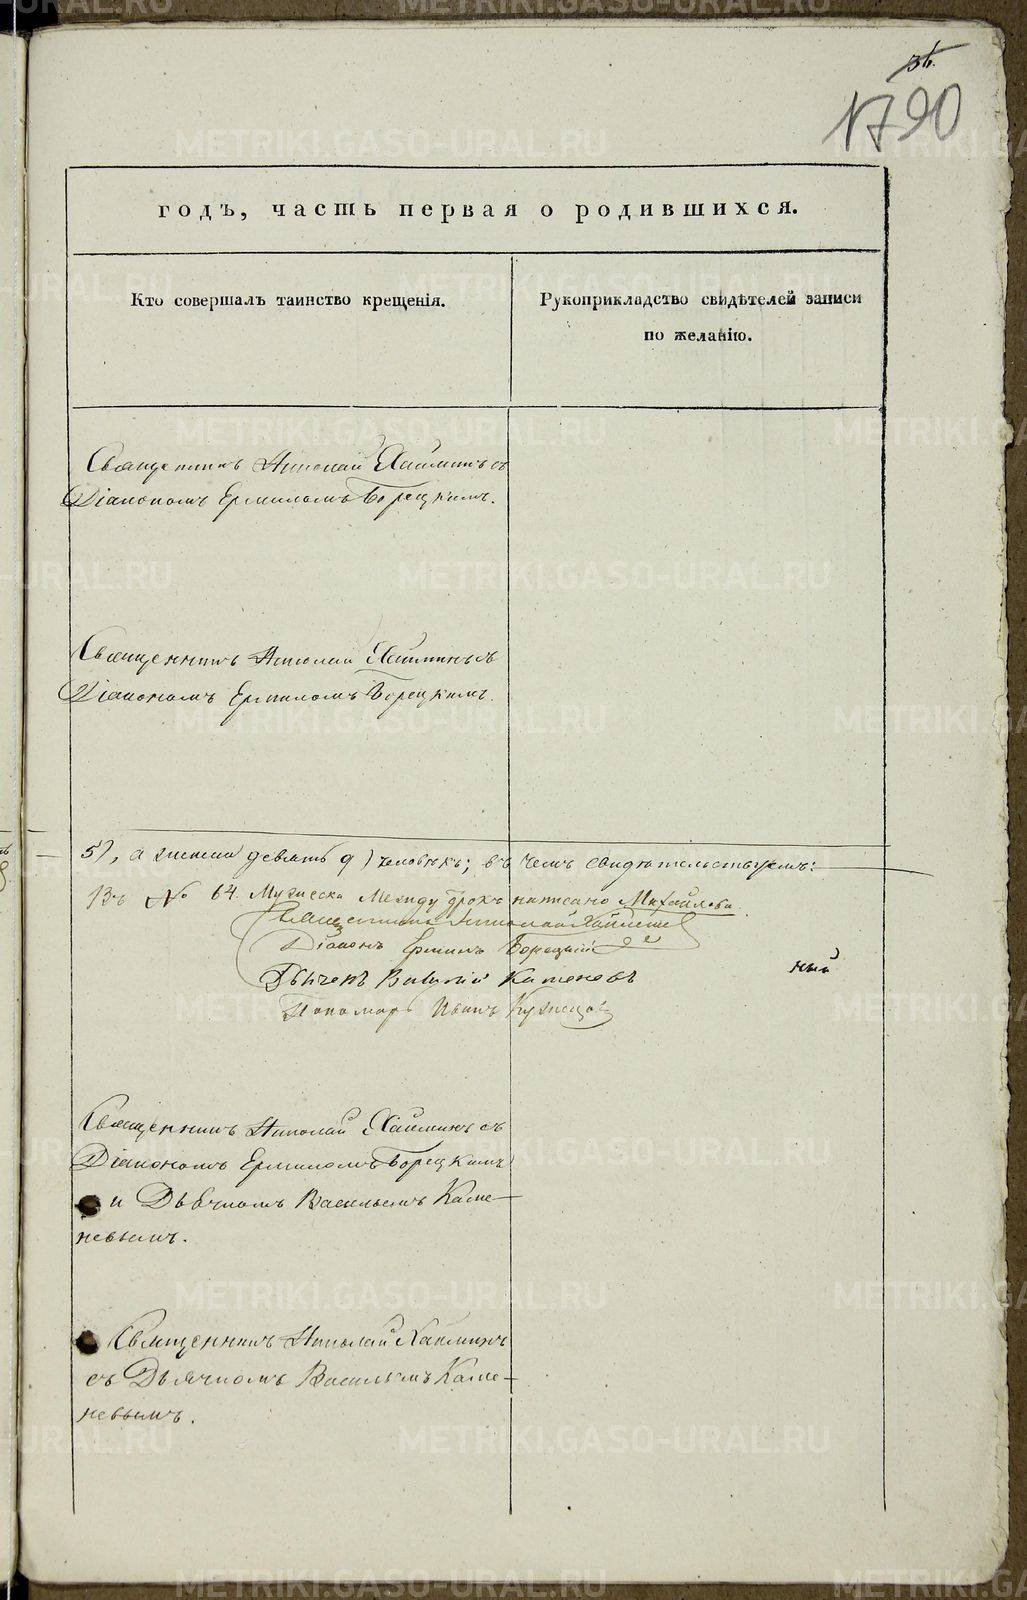 36.
1790
годъ, часть первая о родившихся.
Кто совершалъ таинство крещенія.
Рукоприкладство свидѣтелей записи
по желанію.
Священникъ Николай Хаймикъ съ
Діакономъ Ермиломъ Борецкимъ.
Священникъ Николай Хаймикъ съ
Діакономъ Ермиломъ Борецкимъ.
5), а женска девять 9) человѣкъ; въ чемъ свидѣтельствуемъ:
Въ № 64. Мужеска Между строкъ написано Михайлова.
Священникъ Николай
Діаконъ Ермилъ Борецкій
ный
Дьячекъ Василій Каменевъ
Пономарь Иванъ Кузнецов
Священникъ Николай Хаймикъ съ
Діакономъ Ермиломъ Борецкимъ
и Дьячкомъ Васильемъ Каме-
невымъ.
Священникъ Николай Хаймикъ
съ Дьячкомъ Васильемъ Каме-
невымъ.
METRIKI.GASO-URAL.RU